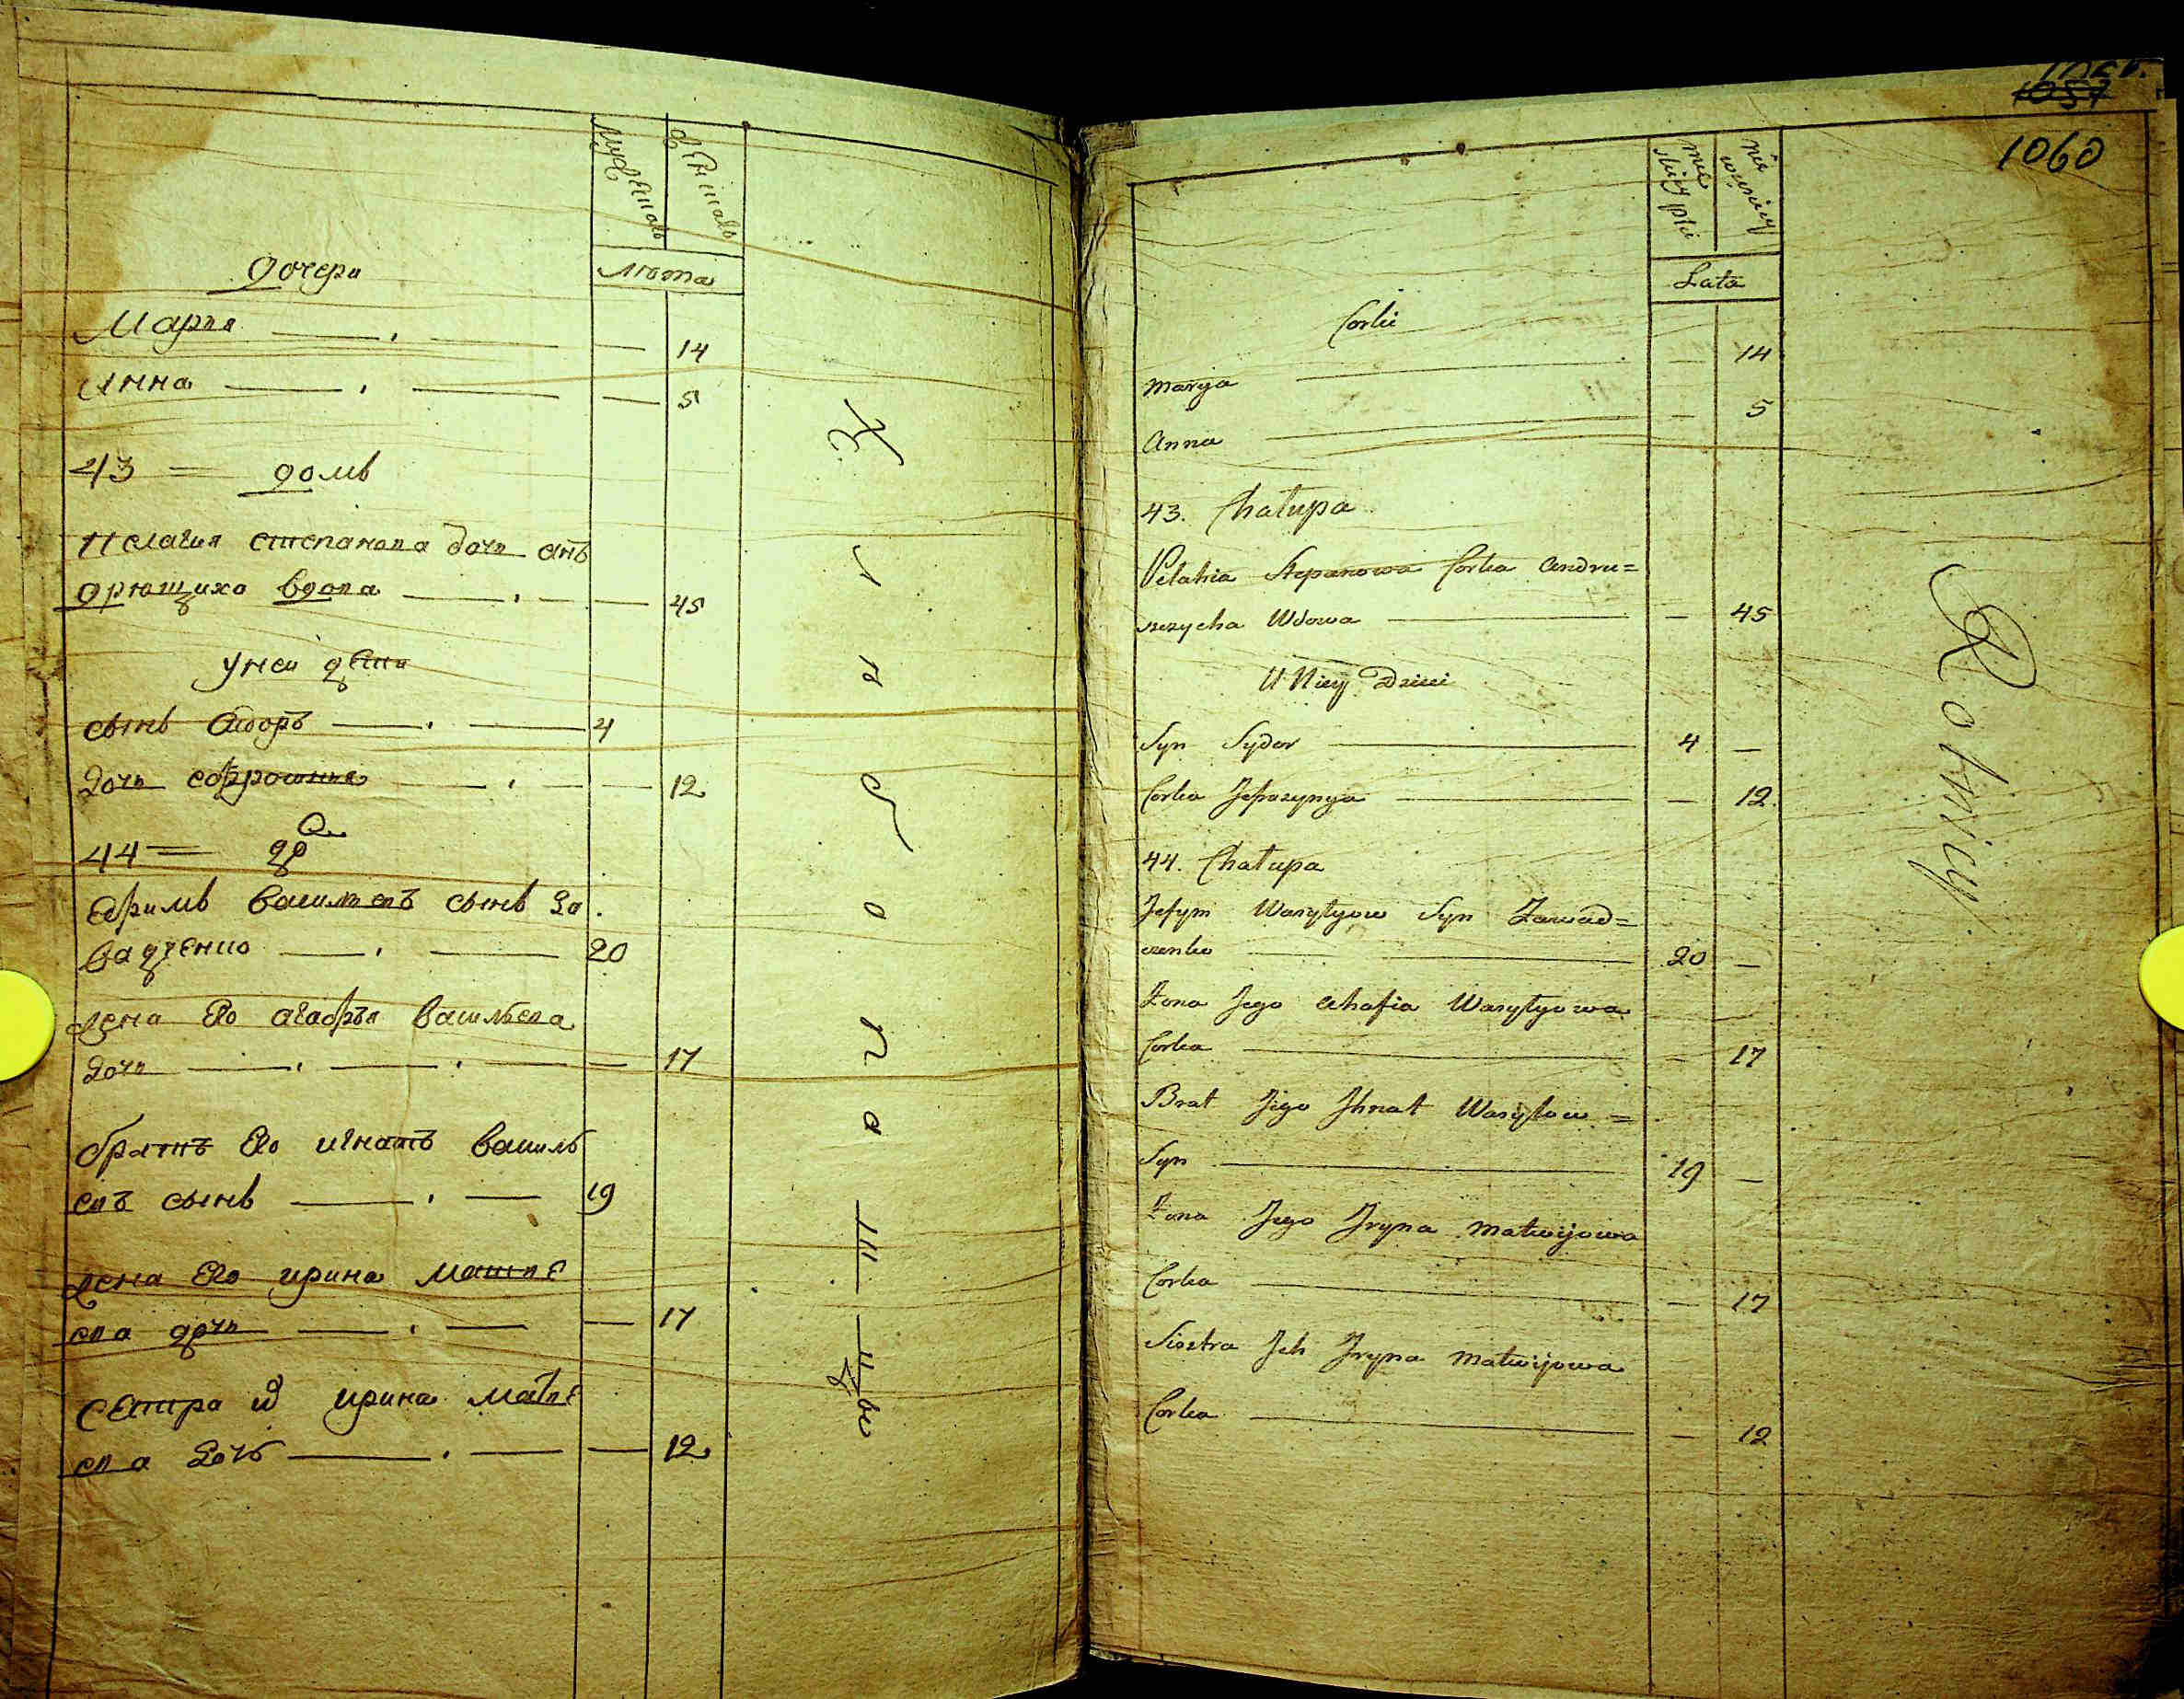 Мужеска
Женска
Лета
дочери
Мария 14
Анна 5
43 домъ
Пелагия степанова дочь анъ
дрющиха вдова 45
у неи дети
сынъ Сидоръ 4
дочь ефросиния 12
44 дво
Ефримъ василиевъ сынъ За
вадченко 20
жена Его агафья васильева
дочь 17
братъ Его игнатъ василь
евъ сынъ 19
жена Его ирина матве
ева дочь 17
сестра их ирина матве
ева дочь 12
Хлебопашцы
1057
1060
męskiey płci
Lata
Corki
Marya 14
Anna 5
43. Chałupa
Pelahia Stepanowa Corka Andru=
szczycha Wdowa 45
U Niey Dzieci
Syn Sydor 4
Corka Jefrozynya 12
44. Chałupa
Jefym Wasylyow Syn Zawad=
czenko 20
Żona Jego Ahafia Wasylyowa
Corka 17
Brat Jego Jhnat Wasylow=
Syn 19
Żona Jego Jryna Matwijowa
Corka 17
Siostra Jch Jryna Matwijowa
Corka 12
Rolnicy